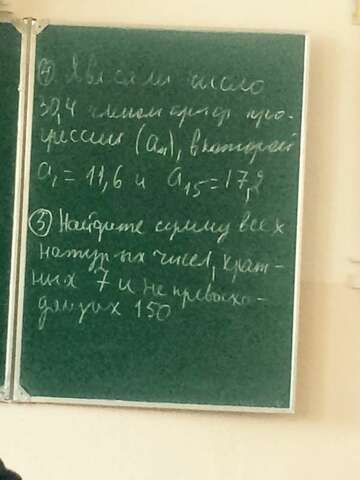 ④ Явл. ли число
30,4 членом ариф. про-
грессии (aₙ), в которой
a₁ = 11,6 и a₁₅ = 17,2
⑤ Найдите сумму всех
натур-ых чисел, крат-
ных 7 и не превосхо-
дящих 150